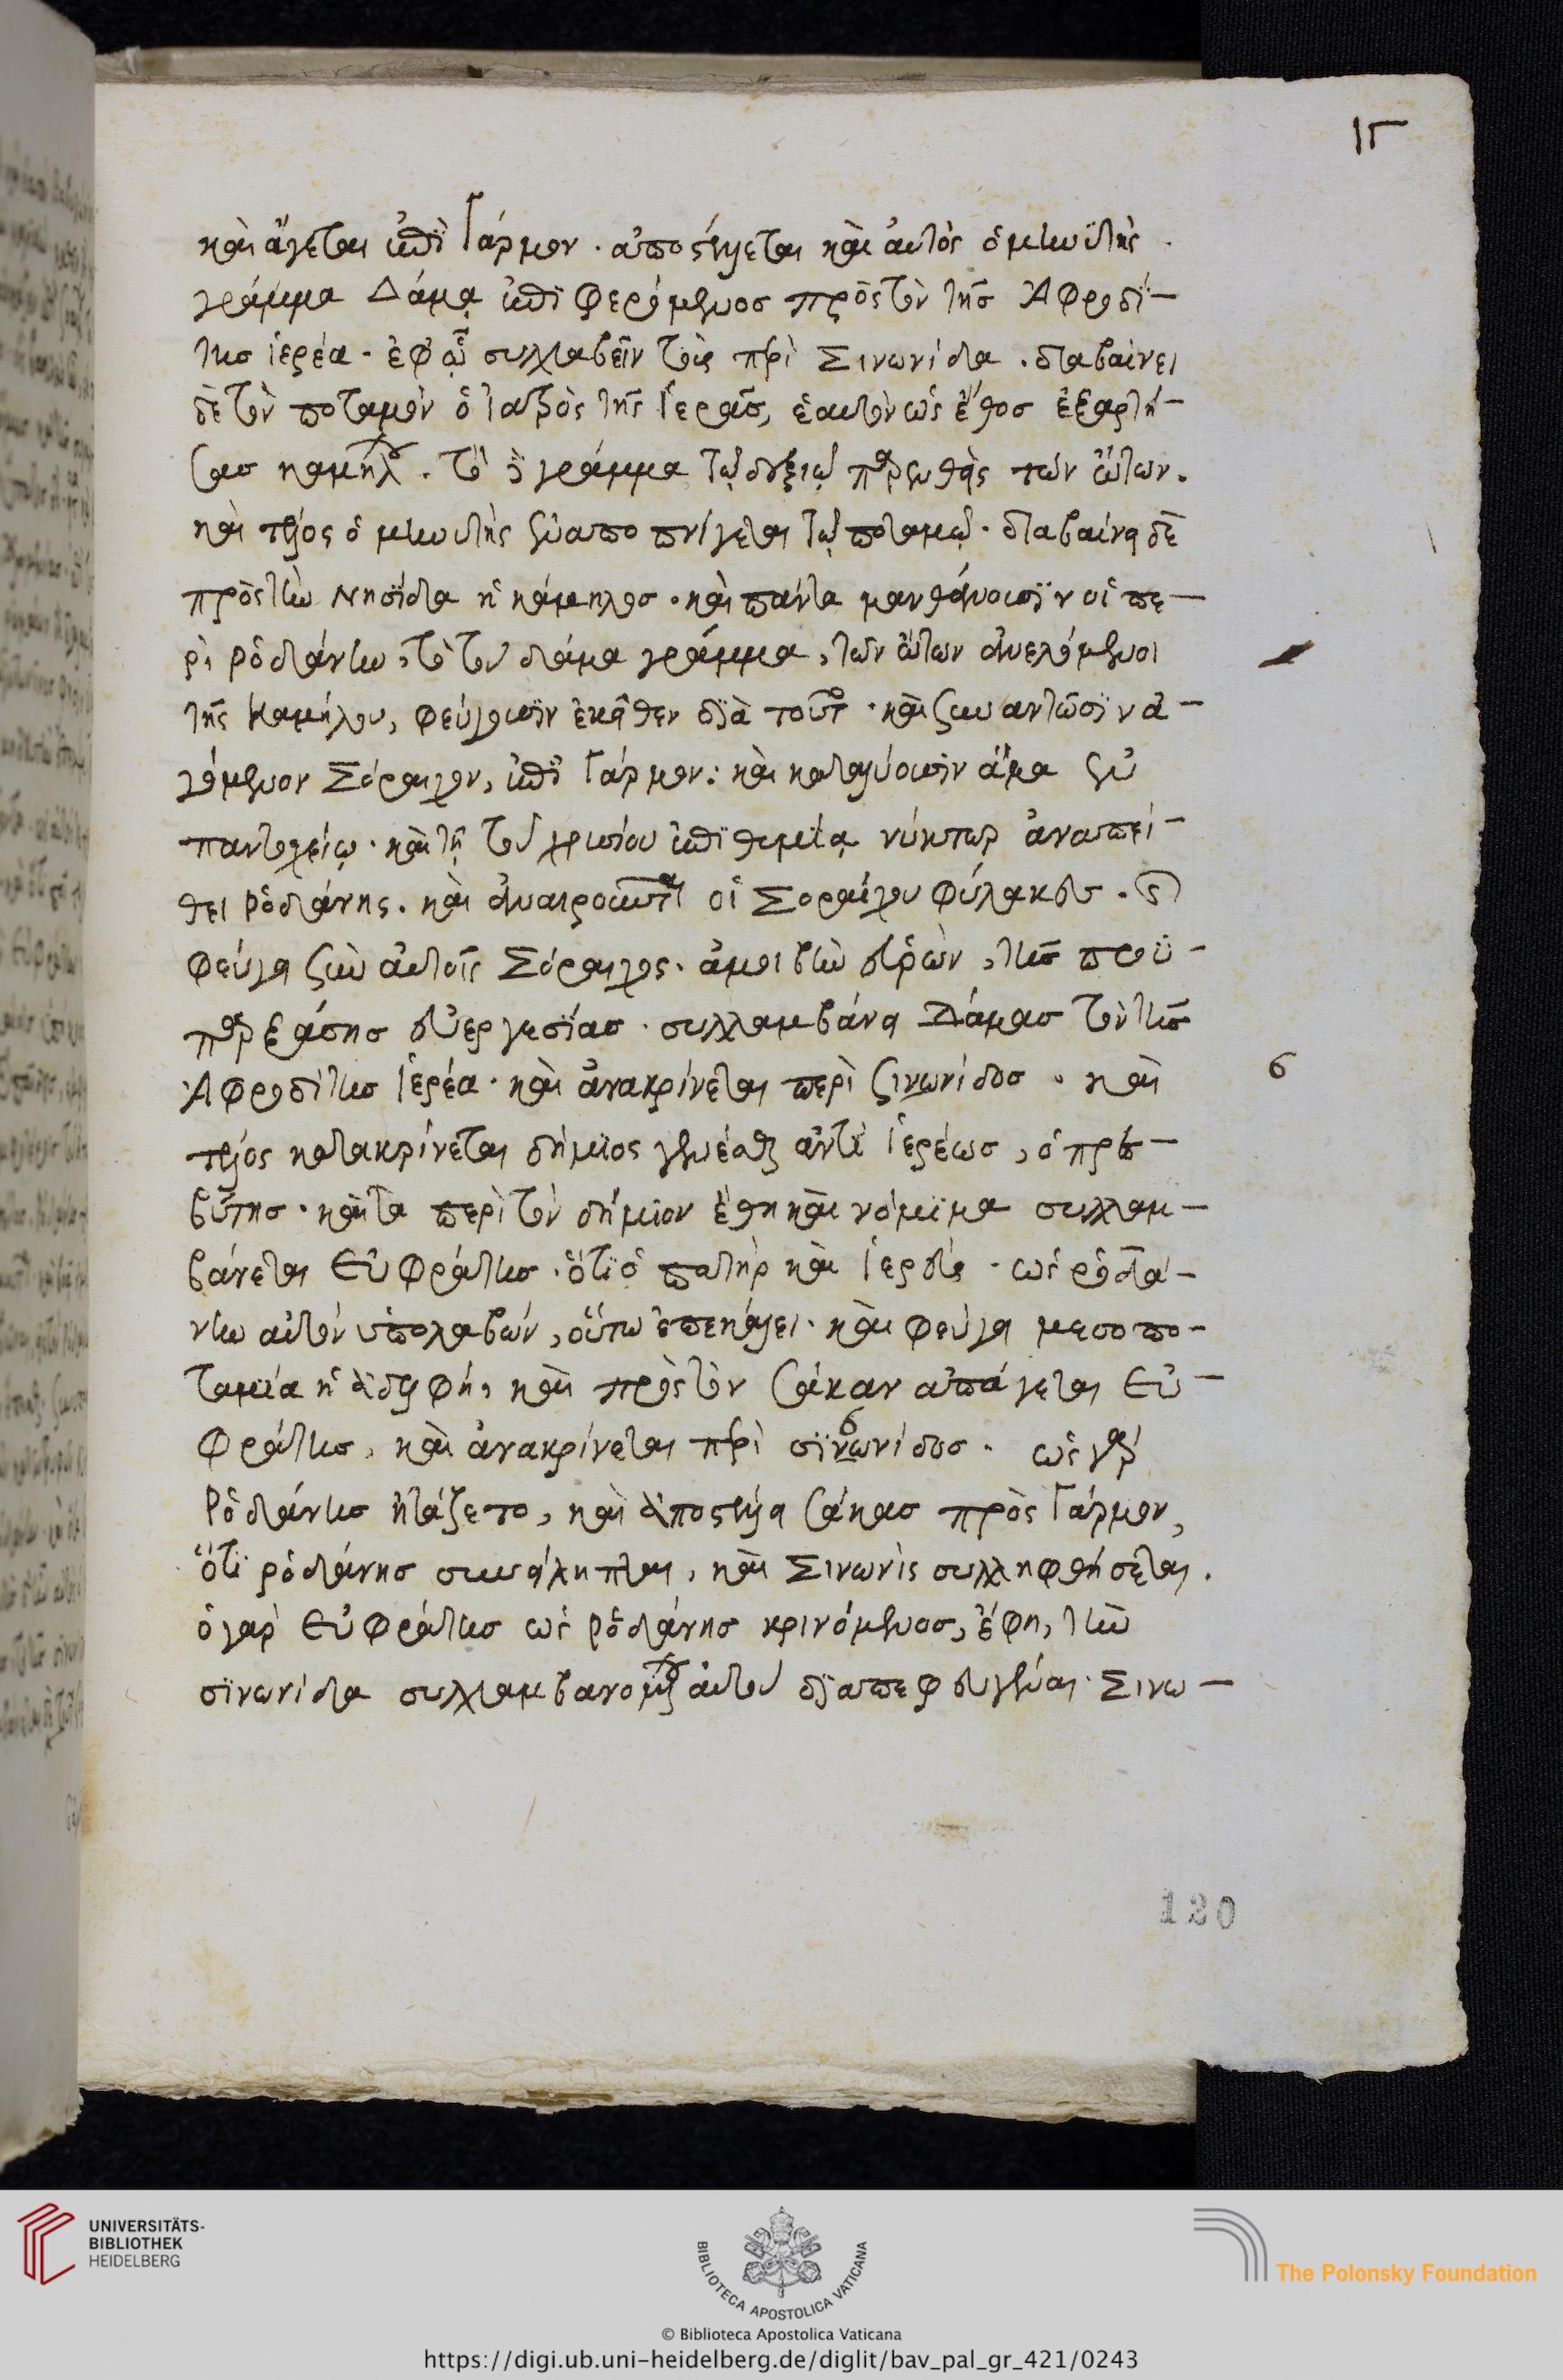 ιγ
καὶ ἄγεται ἐπὶ Γάρμον. ἀποστέλλεται καὶ αὐτὸς ὁ μηνυτὴς.
γράμμα Δάμα ἐπιφερόμενος πρὸς τὸν τῆς Ἀφροδί-
της ἱερέα. ἐφ' ᾧ συλλαβεῖν τοὺς περὶ Σινωνίδα. διαβαίνει
δὲ τὸν ποταμὸν ὁ ἰατρὸς τῆς ἱερᾶς, ἑαυτὸν ὡς ἔθος ἐξαρτή-
σας καμήλου. τὸ δὲ γράμμα τῷ δεξιῷ παρενθεὶς τῶν ὤτων.
καὶ τέλος ὁ μηνυτὴς ἐναποπνίγεται τῷ ποταμῷ. διαβαίνει δὲ
πρὸς τὴν νησῖδα ἡ κάμηλος. καὶ πάντα μανθάνουσιν οἱ πε-
ρὶ ῥοδάνην, τὸ τοῦ δάμα γράμμα, τῶν ὤτων ἀνελόμενοι
τῆς καμήλου, φεύγουσιν ἐκεῖθεν διὰ τοῦτο. καὶ συναντῶσιν ἀ-
γόμενον Σόραιχον, ἐπὶ Γάρμον: καὶ καταλύουσιν ἅμα ἐν
πανδοχείῳ. καὶ τῇ τοῦ χρυσίου ἐπιθυμίᾳ νύκτωρ ἀναπεί-
θει ῥοδάνης. καὶ ἀναιροῦνται οἱ Σοραίχου φύλακες. καὶ
φεύγει σὺν αὐτοῖς Σόραιχος. ἀμοιβὴν εὑρὼν, τῆς προϋ-
παρξάσης εὐεργεσίας. συλλαμβάνει Δάμας τὸν τῆς
Ἀφροδίτης ἱερέα. καὶ ἀνακρίνεται περὶ σινωνίδος. καὶ
τέλος κατακρίνεται δήμιος γενέσθαι ἀντὶ ἱερέως, ὁ πρεσ-
βύτης. καὶ τὰ περὶ τὸν δήμιον ἔθη καὶ νόμιμα συλλαμ-
βάνεται Εὐφράτης. ὅτι ὁ πατὴρ καὶ ἱερεὺς. ὡς ῥοδά-
νην αὐτὸν ὑπολαβών, οὕτω ἐπεκάλει. καὶ φεύγει μεσοπο-
ταμία ἡ ἀδελφή, καὶ πρὸς τὸν σάκαν ἀπάγεται Εὐ-
φράτης, καὶ ἀνακρίνεται περὶ σινωνίδος. ὡς γὰρ
ῥοδάνης ἠτάζετο, καὶ ἀποστέλλει σάκας πρὸς Γάρμον,
ὅτι ῥοδάνης συνείληπται, καὶ Σινωνὶς συλληφθήσεται.
ὁ γὰρ Εὐφράτης ὡς ῥοδάνης κρινόμενος, ἔφη, τὴν
σινωνίδα συλλαμβανομένου αὐτοῦ διαπεφευγέναι Σινω-
120
UNIVERSITÄTS-
BIBLIOTHEK
HEIDELBERG
BIBLIOTECA APOSTOLICA VATICANA
The Polonsky Foundation
© Biblioteca Apostolica Vaticana
https://digi.ub.uni-heidelberg.de/diglit/bav_pal_gr_421/0243